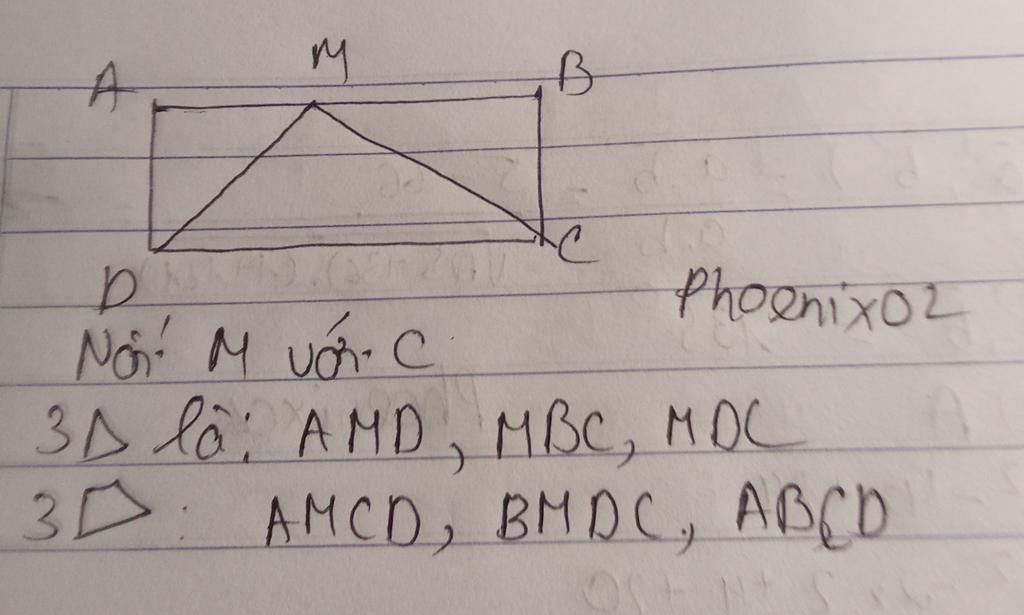 A M B
D C
Phoenix02
Nối M với C
3Δ là: AMD, MBC, MDC
3▱: AMCD, BMDC, ABCD